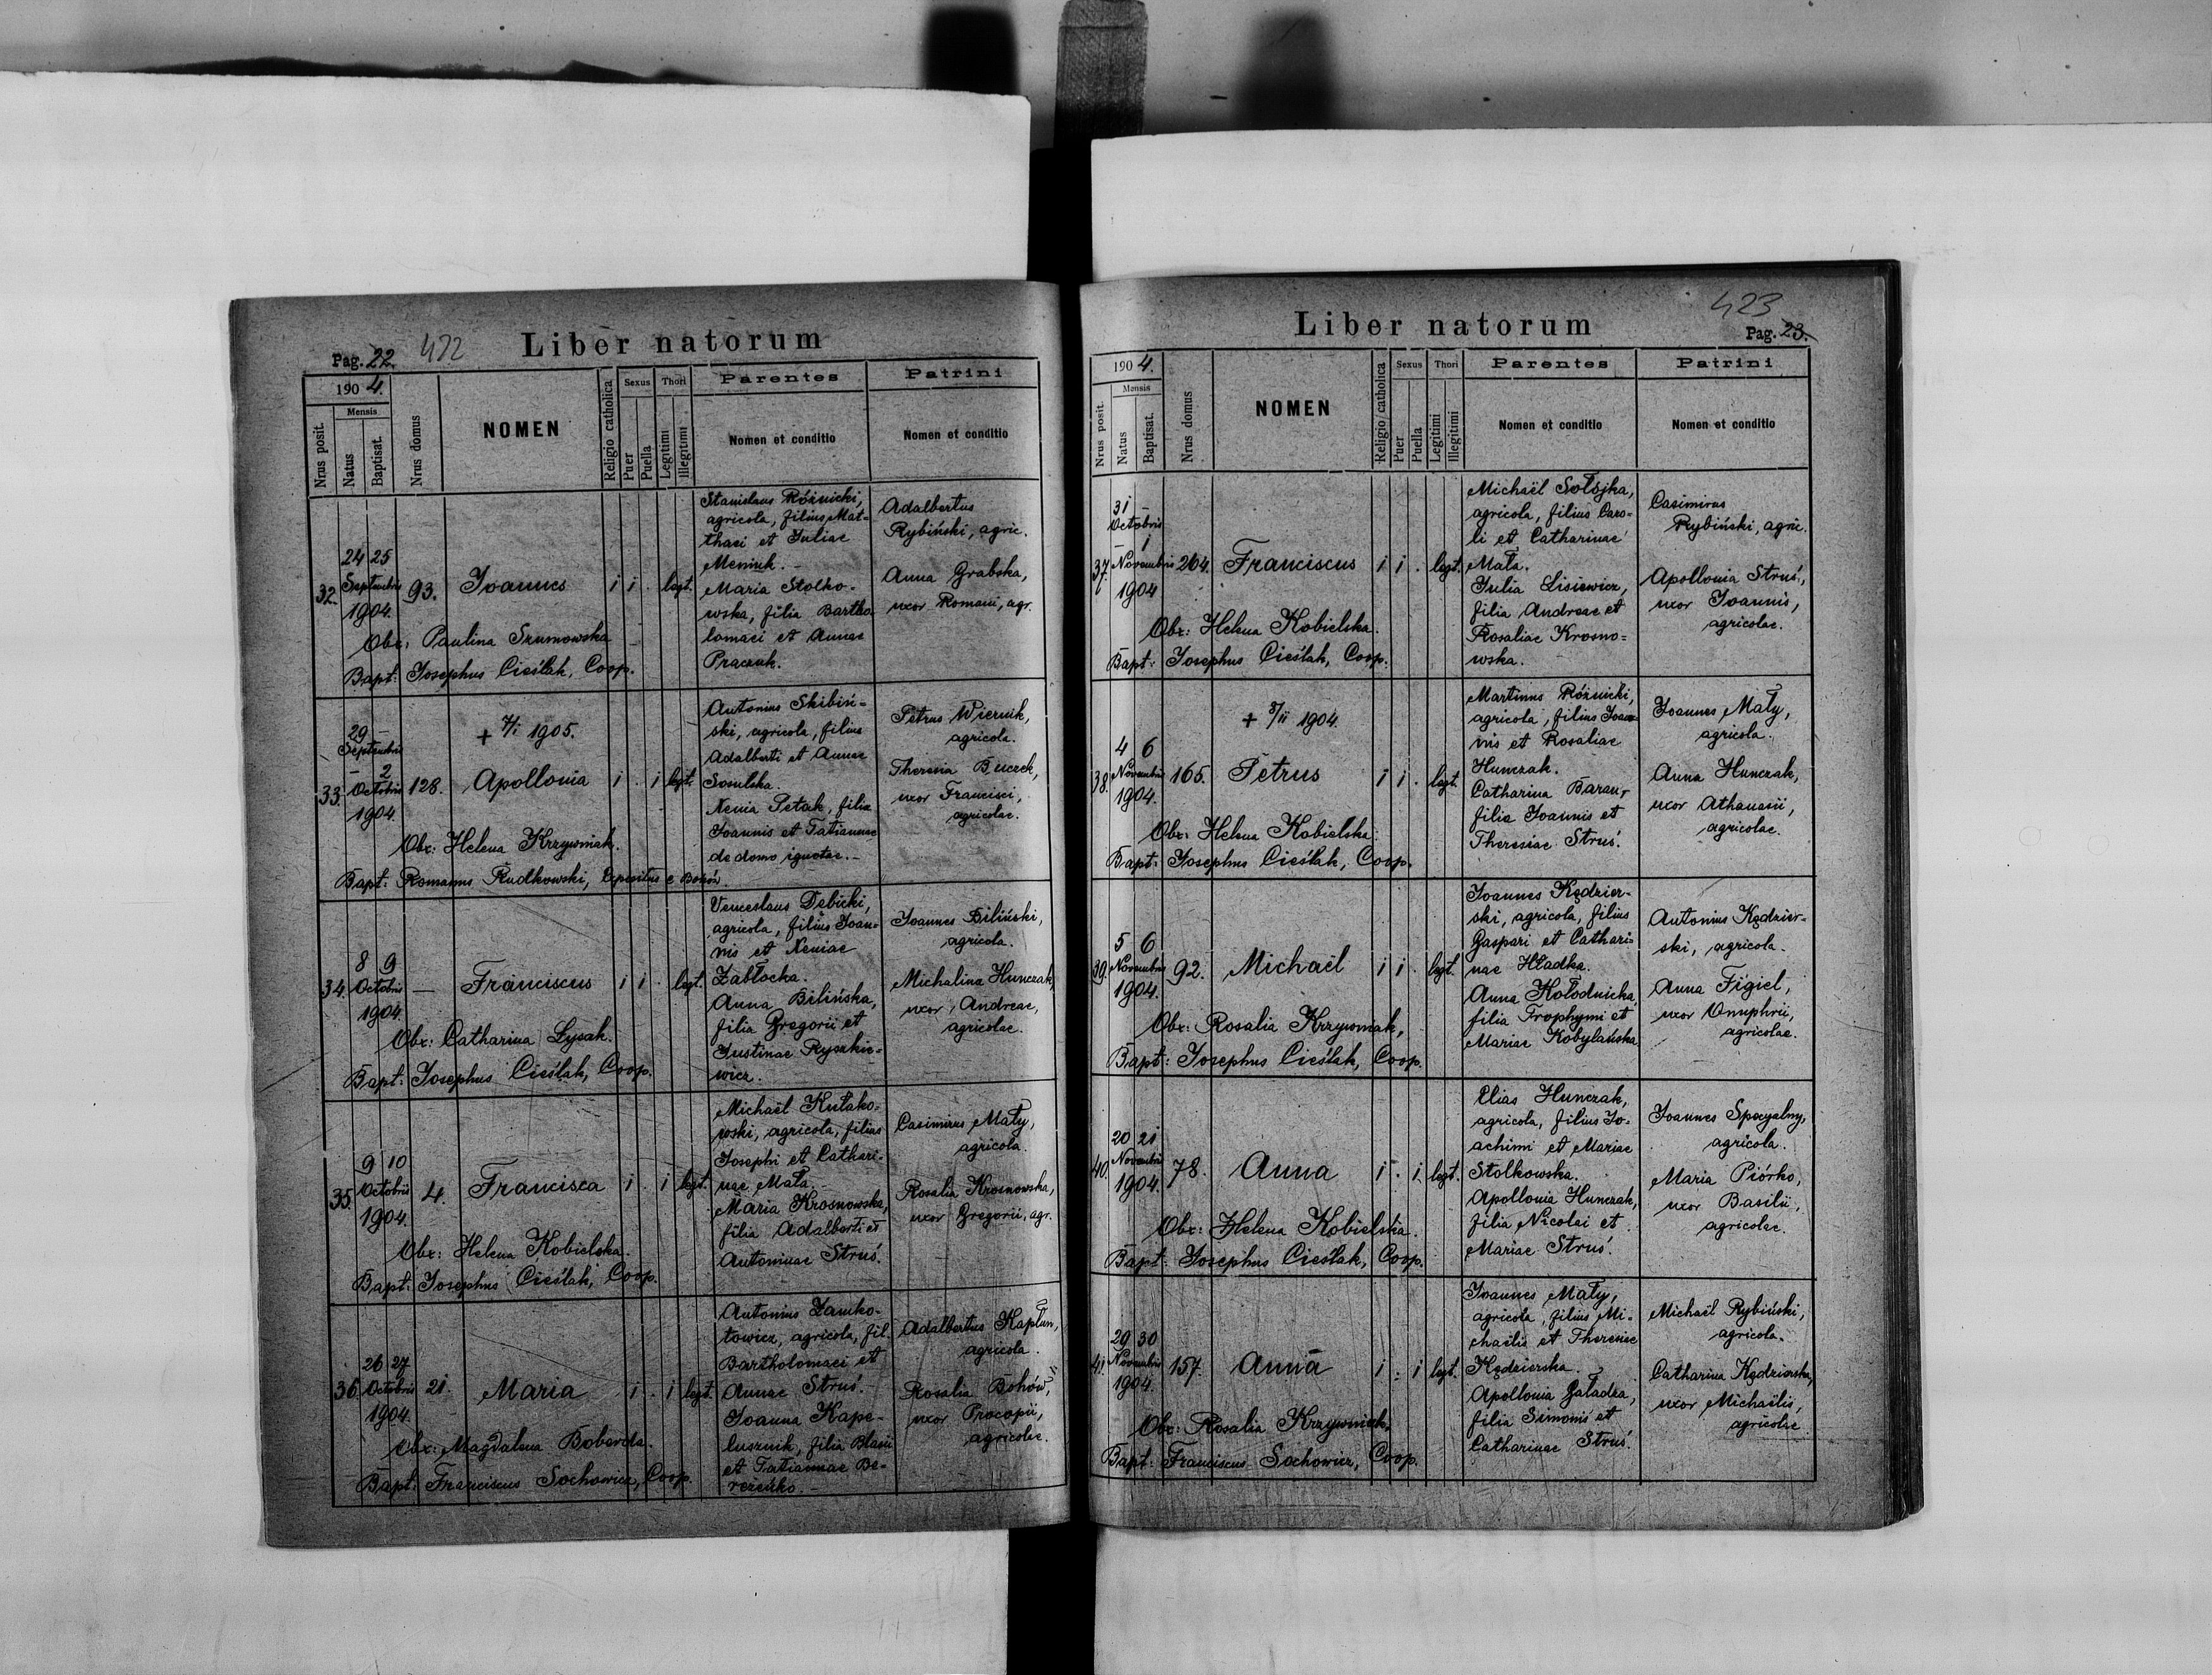 Pag. 22. 422 Liber natorum
190 4.
Mensis
Nrus posit.
Natus
Baptisat.
Nrus domus
NOMEN
Religio catholica
Sexus
Puer
Puella
Thori
Legitimi
Illegitimi
Parentes
Nomen et conditio
Patrini
Nomen et conditio
32.
24 25
Septembris
1904.
93.
Joannes
i i . legt.
Stanislaus Róźnicki,
agricola, filius Mat=
thaei et Juliae
Meniuk. –
Maria Stolko-
wska, filia Bartho
lomaei et Annae
Praczuk.
Adalbertus
Rybiński, agric.
Anna Grabska,
uxor Romani, agr.
Obx: Paulina Szumowska
Bapt: Josephus Cieślak, Coop.
33.
29 –
Septembris
– 2
Octobris
1904.
128.
+ 7/1 1905.
Apollonia
i . i legt.
Antonius Skibiń=
ski, agricola, filius
Adalberti et Annae
Sosulska.
Xenia Petak, filia
Joannis et Tatiannae
de domo ignotae. –
Petrus Wiernik,
agricola.
Theresia Buczek,
uxor Francisci,
agricolae.
Obx: Helena Krzywniak.
Bapt: Romanus Rudkowski, Expositus e Bohów.
34.
8 9
Octobris
1904.
—
Franciscus
i i . legt.
Venceslaus Dębicki,
agricola, filius Joan=
nis et Xeniae
Zabłocka.
Anna Bilińska,
filia Gregorii et
Justinae Ryszkie=
wicz.
Joannes Biliński,
agricola.
Michalina Hunczak,
uxor Andreae,
agricolae.
Obx: Catharina Łysak.
Bapt: Josephus Cieślak, Coop.
35.
9 10
Octobris
1904.
4.
Francisca
i . i legt.
Michaël Kułako-
wski, agricola, filius
Josephi et Cathari-
nae Mała. –
Maria Krosnowska,
filia Adalberti et
Antoninae Struś.
Casimirus Mały,
agricola.
Rosalia Krosnowska,
uxor Gregorii, agr.
Obx: Helena Kobielska.
Bapt: Josephus Cieślak, Coop.
36.
26 27
Octobris
1904.
21.
Maria
i . i legt.
Antonius Zamko-
towicz, agricola, fil.
Bartholomaei et
Annae Struś. –
Joanna Kape-
lusznik, filia Blasii
et Tatiannae Be-
reźeńko. –
Adalbertus Kapłun,
agricola.
Rosalia Bohów,
uxor Procopii,
agricolae.
Obx: Magdalena Boberda.
Bapt: Franciscus Sochowicz, Coop.
423
Liber natorum Pag. 23.
190 4.
Mensis
Nrus posit.
Natus
Baptisat.
Nrus domus
NOMEN
Religio catholica
Sexus
Puer
Puella
Thori
Legitimi
Illegitimi
Parentes
Nomen et conditio
Patrini
Nomen et conditio
37.
31 –
Octobris
– 1
Novembris
1904
264.
Franciscus
i i . legt.
Michaël Sołojka,
agricola, filius Caro-
li et Catharinae
Mała.
Julia Lisiewicz,
filia Andreae et
Rosaliae Krosno=
wska.
Casimirus
Rybiński, agric.
Apollonia Struś,
uxor Joannis,
agricolae.
Obx: Helena Kobielska.
Bapt: Josephus Cieślak, Coop.
38.
4 6
Novembris
1904.
165.
+ 8/11 1904.
Petrus
i i . legt.
Martinus Róźnicki,
agricola, filius Joan=
nis et Rosaliae
Hunczak.
Catharina Baran,
filia Joannis et
Theresiae Struś.
Joannes Mały,
agricola.
Anna Hunczak,
uxor Athanasii,
agricolae.
Obx: Helena Kobielska.
Bapt: Josephus Cieślak, Coop.
39.
5 6
Novembris
1904.
92.
Michaël
i i . legt.
Joannes Kędzier-
ski, agricola, filius
Gaspari et Cathari=
nae Hładka.
Anna Kołodnicka,
filia Trophymi et
Mariae Kobylańska
Antonius Kędzier=
ski, agricola.
Anna Figiel,
uxor Onuphrii,
agricolae.
Obx: Rosalia Krzywniak,
Bapt: Josephus Cieślak, Coop.
40.
20 21
Novembris
1904.
78.
Anna
i . i. legt.
Elias Hunczak,
agricola, filius Jo-
achimi et Mariae
Stolkowska.
Apollonia Hunczak,
filia Nicolai et
Mariae Struś.
Joannes Specyalny,
agricola.
Maria Piórko,
uxor Basilii,
agricolae.
Obx: Helena Kobielska.
Bapt: Josephus Cieślak, Coop.
41.
29 30
Novembris
1904.
157.
Anna
i . i legt.
Joannes Mały,
agricola, filius Mi-
chaëlis et Theresiae
Kędzierska.
Apollonia Gaładza,
filia Simonis et
Catharinae Struś.
Michaël Rybiński,
agricola.
Catharina Kędzierska,
uxor Michaëlis,
agricolae.
Obx: Rosalia Krzywniak,
Bapt: Franciscus Sochowicz, Coop.